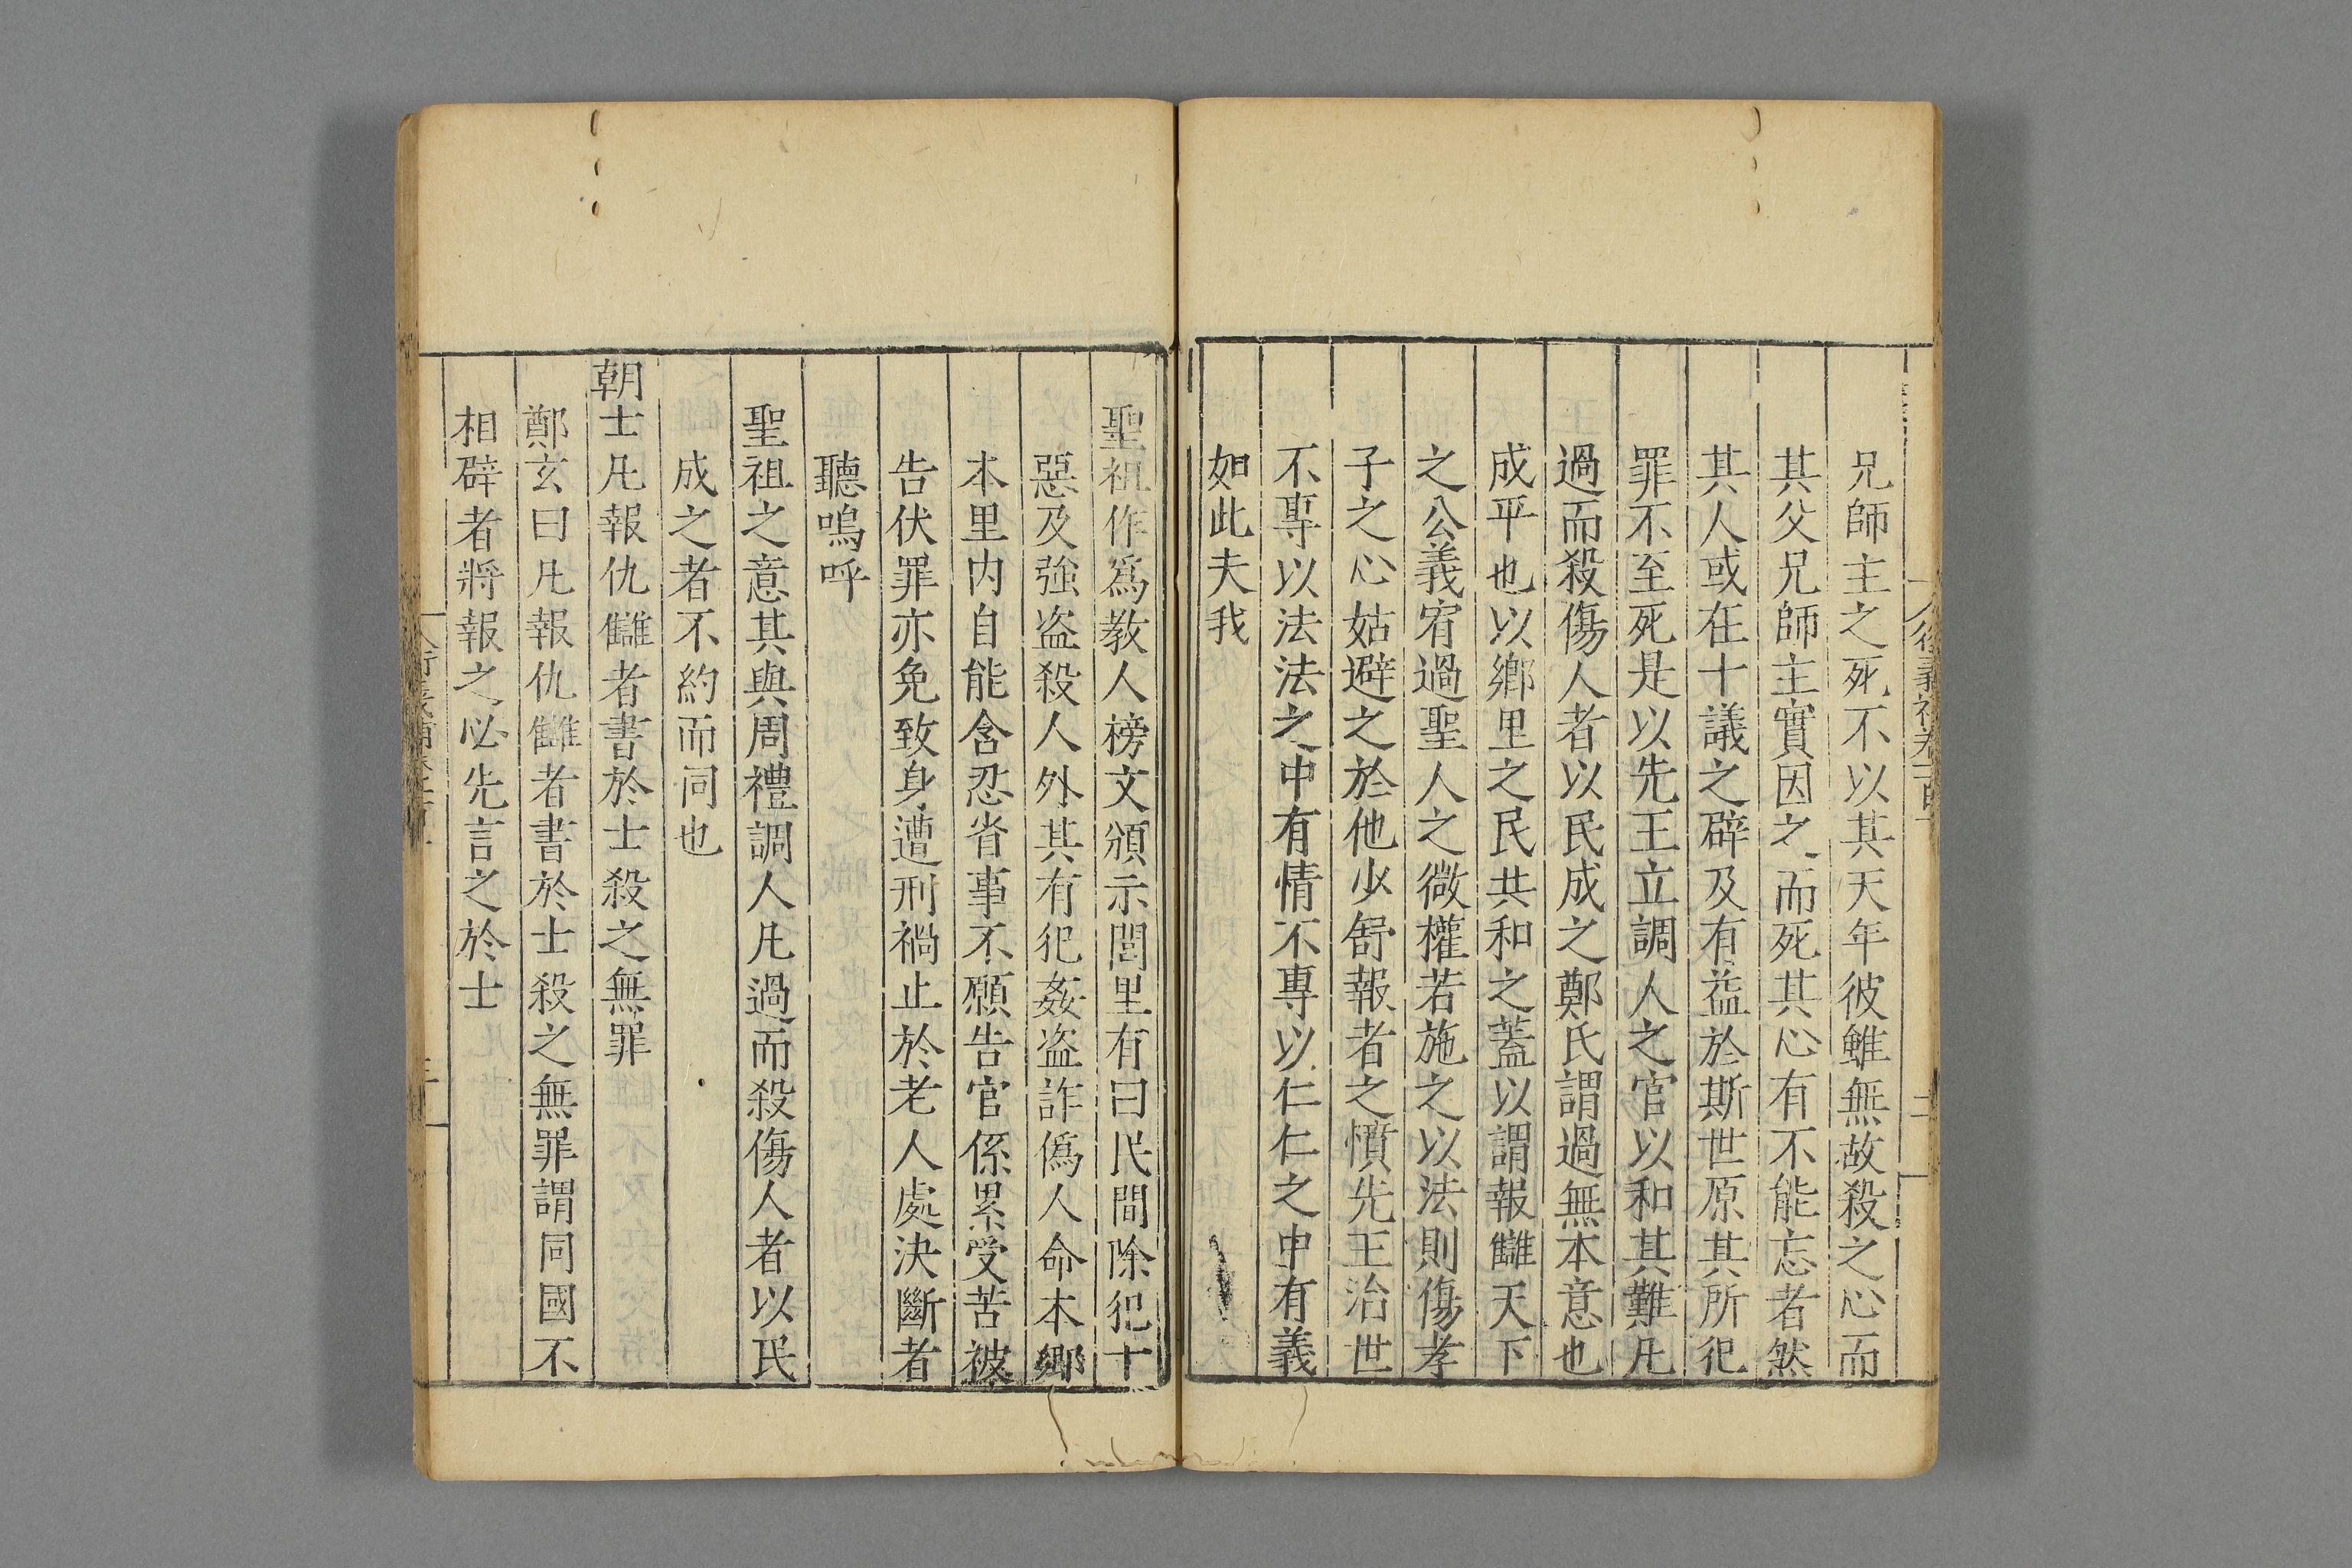 兄師主之死不以其天年彼雖無故殺之心而
其父兄師主實因之而死其心有不能忘者然
其人或在十議之辟及有益於斯世原其所犯
罪不至死是以先王立調人之官以和其難凡
過而殺傷人者以民成之鄭氏謂過無本意也
成平也以鄉里之民共和之蓋以謂報讎天下
之公義宥過聖人之微權若施之以法則傷孝
子之心姑避之於他少舒報者之憤先王治世
不專以法法之中有情不專以仁仁之中有義
如此夫我
聖祖作爲教人榜文頒示閭里有曰民間除犯十
惡及強盗殺人外其有犯姦盗詐僞人命本鄉
本里内自能含忍省事不願告官係累受苦被
告伏罪亦免致身遭刑禍止於老人處決斷者
聽嗚呼
聖祖之意其與周禮調人凡過而殺傷人者以民
成之者不約而同也
朝士凡報仇讎者書於士殺之無罪
鄭玄曰凡報仇讎者書於士殺之無罪謂同國不
相辟者將報之必先言之於士